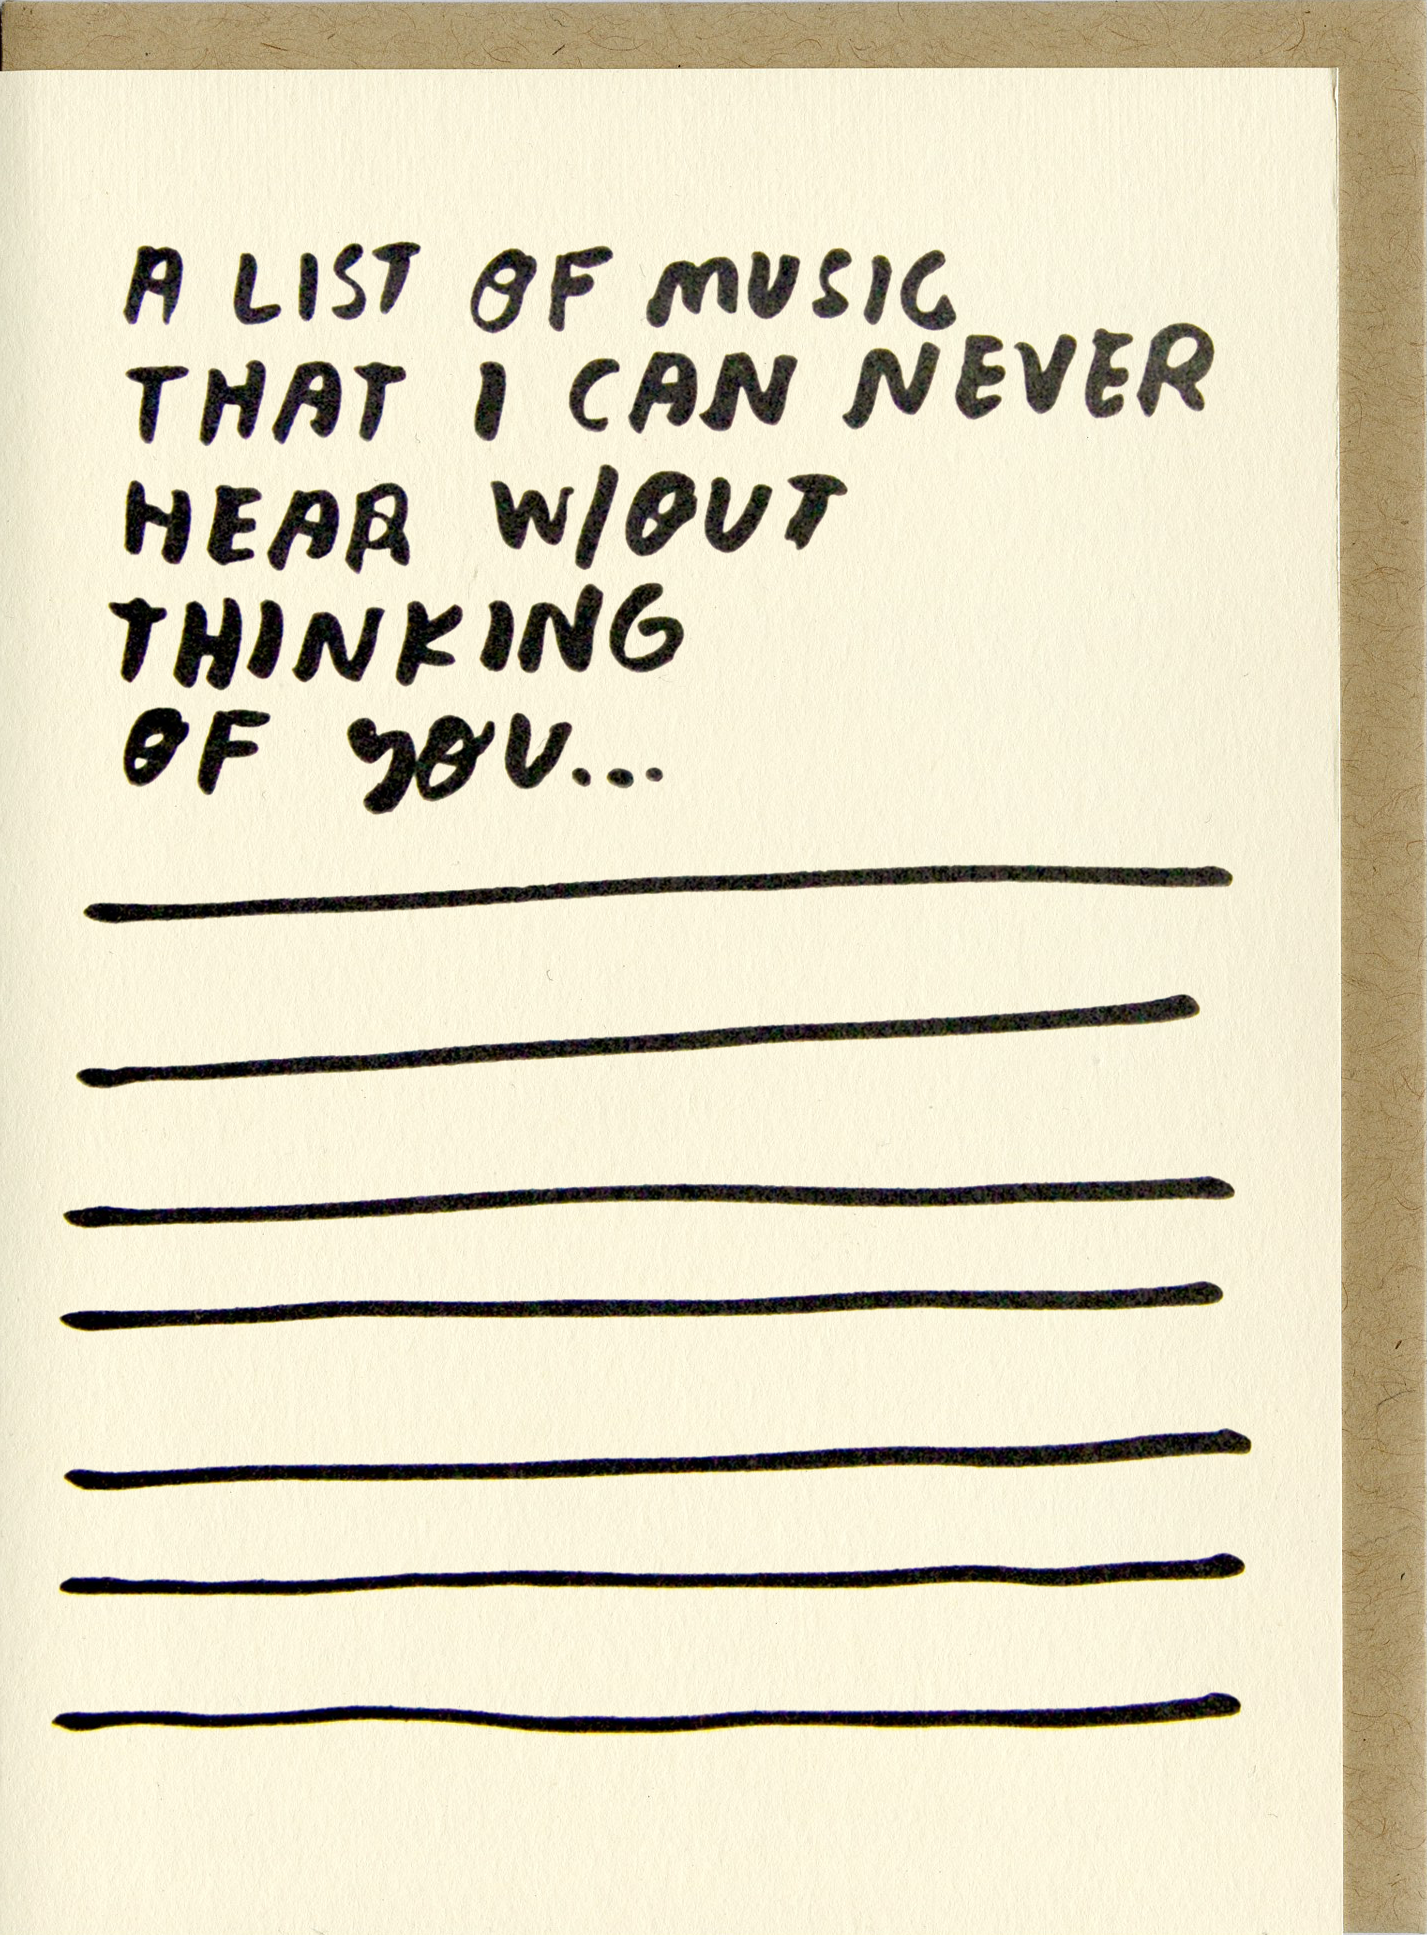 A LIST OF MUSIC
THAT I CAN NEVER
HEAR W/OUT
THINKING
OF YOU...